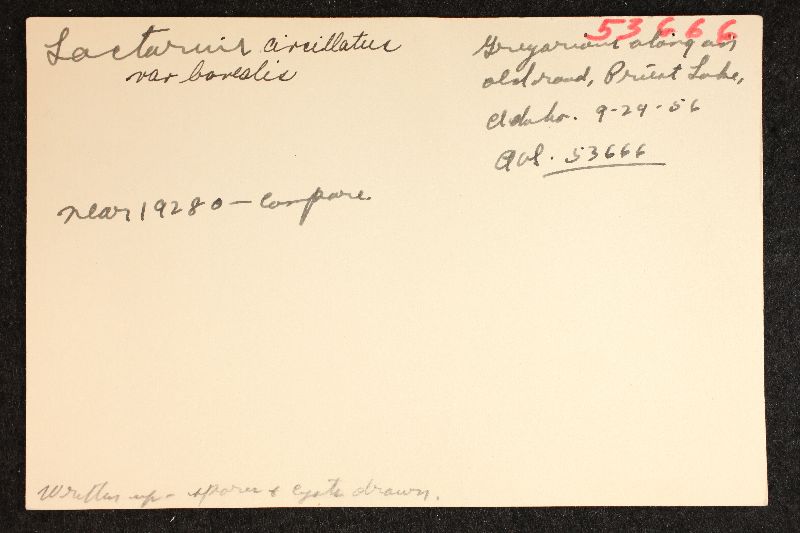 Lactarius circillatus
var borealis
53666
Gregarious along an
old road, Priest Lake,
Idaho. 9-24-56
AHS. 53666
near 19280 - compare
Written up - spores & cysts drawn.